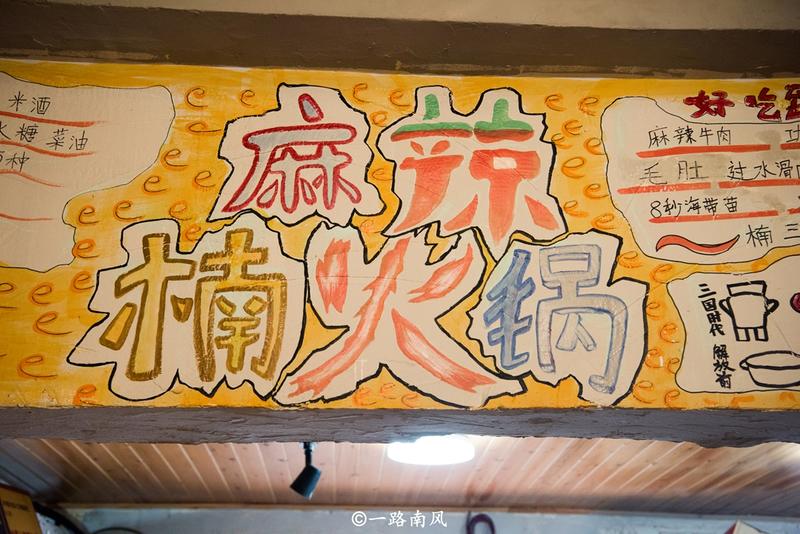 米酒
冰糖 菜油
麻辣
楠火锅
好吃
麻辣牛肉
毛肚 过水滑
8秒海带苗
楠三
三国时代
解放前
©一路南风